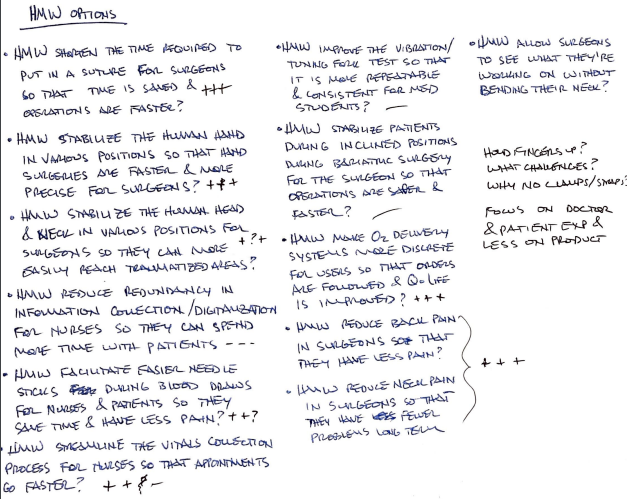 HMW OPTIONS
• HMW SHORTEN THE TIME REQUIRED TO
PUT IN A SUTURE FOR SURGEONS
SO THAT TIME IS SAVED & +++
OPERATIONS ARE FASTER?
• HMW STABILIZE THE HUMAN HAND
IN VARIOUS POSITIONS SO THAT HAND
SURGERIES ARE FASTER & MORE
PRECISE FOR SURGEONS? +++
• HMW STABILIZE THE HUMAN HEAD
& NECK IN VARIOUS POSITIONS FOR
SURGEONS SO THEY CAN MORE +?+
EASILY REACH TRAUMATIZED AREAS?
• HMW REDUCE REDUNDANCY IN
INFORMATION COLLECTION/DIGITALIZATION
FOR NURSES SO THEY CAN SPEND
MORE TIME WITH PATIENTS ---
• HMW FACILITATE EASIER NEEDLE
STICKS DURING BLOOD DRAWS
FOR NURSES & PATIENTS SO THEY
SAVE TIME & HAVE LESS PAIN? ++?
• HMW STREAMLINE THE VITALS COLLECTION
PROCESS FOR NURSES SO THAT APPOINTMENTS
GO FASTER? ++ –
• HMW IMPROVE THE VIBRATION/
TUNING FORK TEST SO THAT
IT IS MORE REPEATABLE
& CONSISTENT FOR MED
STUDENTS? —
• HMW STABILIZE PATIENTS
DURING INCLINED POSITIONS
DURING BARIATRIC SURGERY
FOR THE SURGEON SO THAT
OPERATIONS ARE SAFER &
FASTER? —
• HMW MAKE O2 DELIVERY
SYSTEMS MORE DISCRETE
FOR USERS SO THAT ORDERS
ARE FOLLOWED & Q○LIFE
IS IMPROVED? +++
• HMW REDUCE BACK PAIN
IN SURGEONS SO THAT
THEY HAVE LESS PAIN?
• HMW REDUCE NECK PAIN
IN SURGEONS SO THAT
THEY HAVE FEWER
PROBLEMS LONG TERM
+++
• HMW ALLOW SURGEONS
TO SEE WHAT THEY'RE
WORKING ON WITHOUT
BENDING THEIR NECK?
HOLD FINGERS UP?
WHAT CHALLENGES?
WHY NO CLAMPS/STRAPS?
FOCUS ON DOCTOR
& PATIENT EXP &
LESS ON PRODUCT